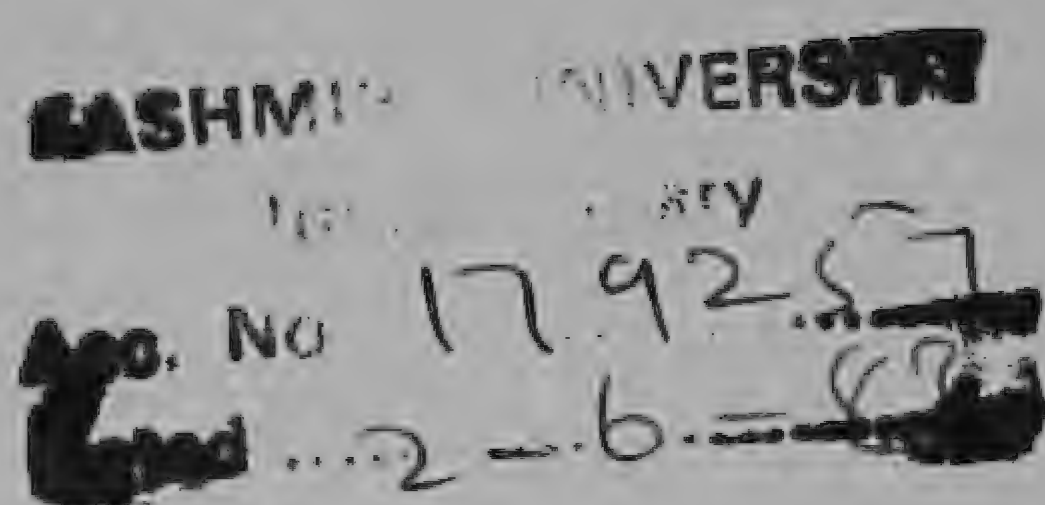 KASHMIR UNIVERSITY
Acc. No 179257
Dated .... 2 - 6 -